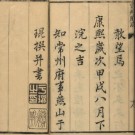 敢望焉
康熙歲次甲戌八月下
浣之吉
知常州府事燕山于
琨撰并書